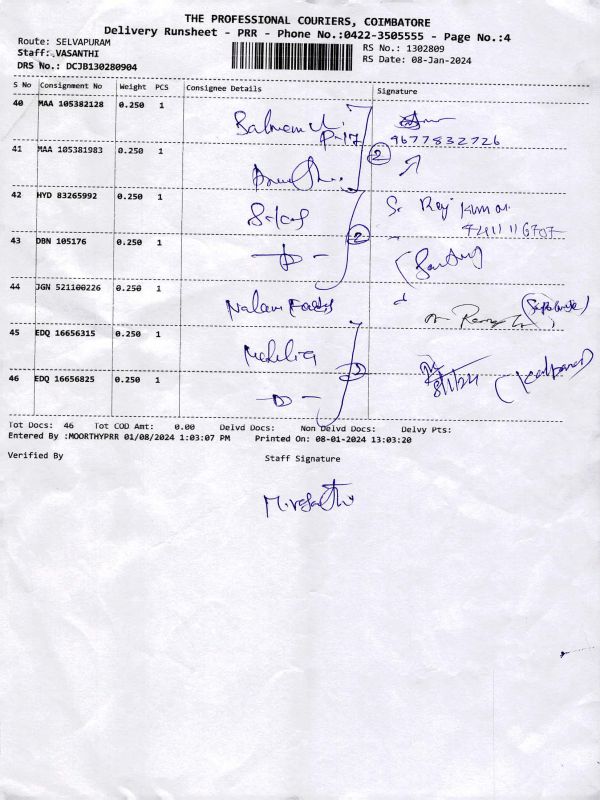 THE PROFESSIONAL COURIERS, COIMBATORE
Delivery Runsheet - PRR - Phone No.:0422-3505555 - Page No.:4
Route: SELVAPURAM
Staff: VASANTHI
DRS No.: DCJB130280904
RS No.: 1302809
RS Date: 08-Jan-2024
S No Consignment No Weight PCS Consignee Details Signature
40 MAA 105382128 0.250 1
9677832726
41 MAA 105381983 0.250 1
2
42 HYD 83265992 0.250 1
S. Raj Kumar
2
43 DBN 105176 0.250 1
- D -
44 JGN 521100226 0.250 1
Nalam
45 EDQ 16656315 0.250 1
8/1/24
2
46 EDQ 16656825 0.250 1
- D -
Tot Docs: 46 Tot COD Amt: 0.00 Delvd Docs: Non Delvd Docs: Delvy Pts:
Entered By :MOORTHYPRR 01/08/2024 1:03:07 PM Printed On: 08-01-2024 13:03:20
Verified By Staff Signature
M.Vasanthi